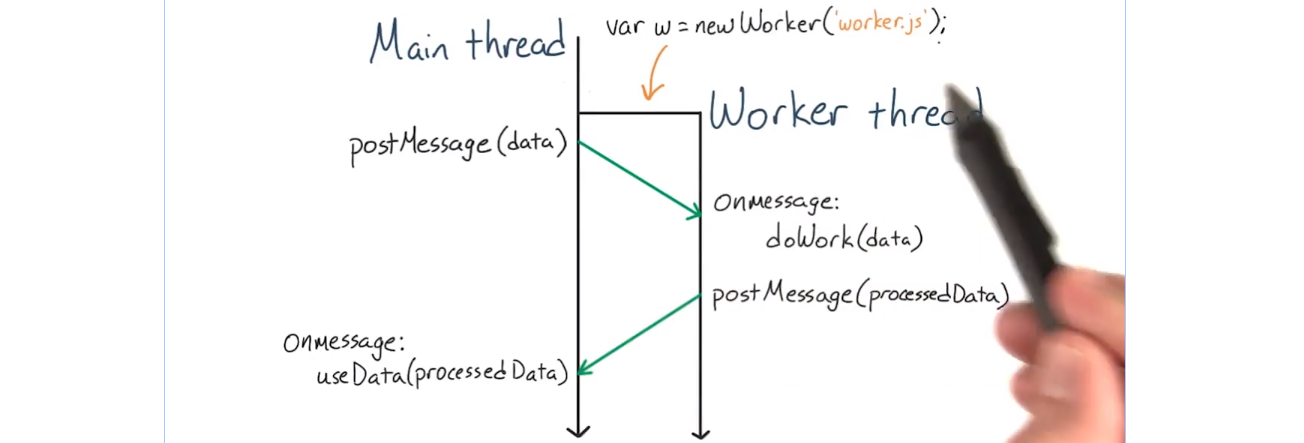 Main thread
var w = new Worker('worker.js');
Worker thread
postMessage(data)
onmessage:
doWork(data)
postMessage(processedData)
onmessage:
useData(processedData)